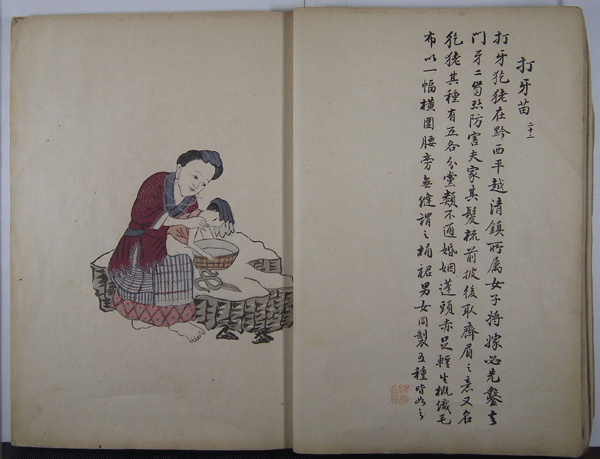 打牙苗
打牙犵狫在黔西平越清鎮所属女子將嫁必先鑿去
門牙二齒恐防害夫家其髮梳前披後取齊眉之意又名
犵狫其種有五各分黨類不通婚姻蓬頭赤足輕生概織毛
布以一幅橫圍腰旁無縫謂之桶裙男女同製五種皆如之